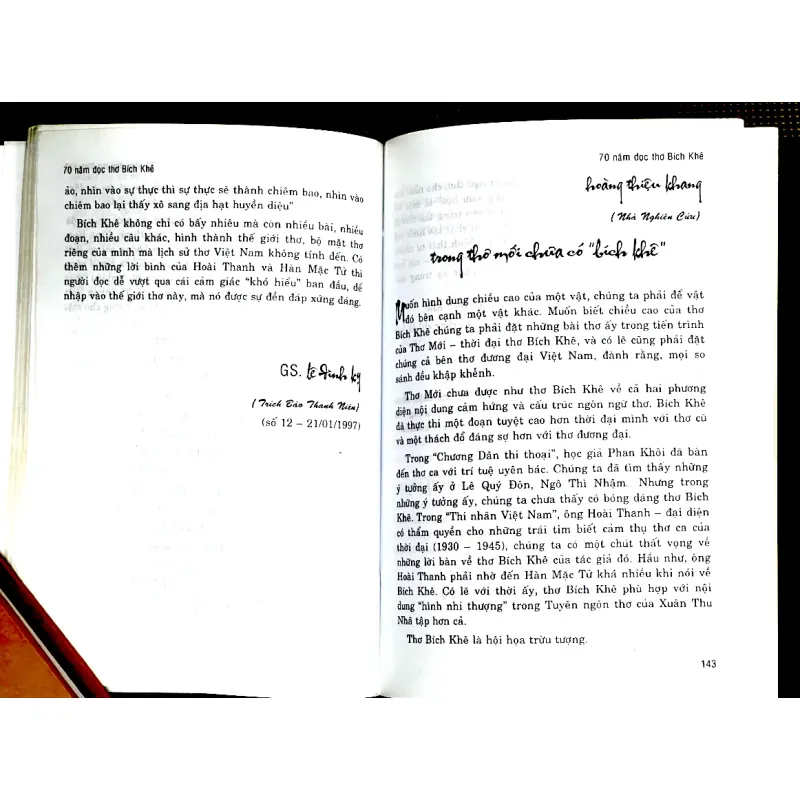 70 năm đọc thơ Bích Khê
ảo, nhìn vào sự thực thì sự thực sẽ thành chiêm bao, nhìn vào
chiêm bao lại thấy xô sang địa hạt huyền diệu"
Bích Khê không chỉ có bấy nhiêu mà còn nhiều bài, nhiều
đoạn, nhiều câu khác, hình thành thế giới thơ, bộ mặt thơ
riêng của mình mà lịch sử thơ Việt Nam không tính đến. Có
thêm những lời bình của Hoài Thanh và Hàn Mặc Tử thì
người đọc dễ vượt qua cái cảm giác "khó hiểu" ban đầu, để
nhập vào thế giới thơ này, mà nó được sự đền đáp xứng đáng.
GS. Lê Đình Kỵ
(Trích Báo Thanh Niên)
(số 12 – 21/01/1997)
70 năm đọc thơ Bích Khê
hoàng thiệu khang
(Nhà Nghiên Cứu)
trong thơ mới chưa có "bích khê"
Muốn hình dung chiều cao của một vật, chúng ta phải để vật
đó bên cạnh một vật khác. Muốn biết chiều cao của thơ
Bích Khê chúng ta phải đặt những bài thơ ấy trong tiến trình
của Thơ Mới – thời đại thơ Bích Khê, và có lẽ cũng phải đặt
chúng cả bên thơ đương đại Việt Nam, đành rằng, mọi so
sánh đều khập khễnh.
Thơ Mới chưa được như thơ Bích Khê về cả hai phương
diện nội dung cảm hứng và cấu trúc ngôn ngữ thơ. Bích Khê
đã thực thi một đoạn tuyệt cao hơn thời đại mình với thơ cũ
và một thách đố đáng sợ hơn với thơ đương đại.
Trong "Chương Dân thi thoại", học giả Phan Khôi đã bàn
đến thơ ca với trí tuệ uyên bác. Chúng ta đã tìm thấy những
ý tưởng ấy ở Lê Quý Đôn, Ngô Thì Nhậm. Nhưng trong
những ý tưởng ấy, chúng ta chưa thấy có bóng dáng thơ Bích
Khê. Trong "Thi nhân Việt Nam", ông Hoài Thanh – đại diện
có thẩm quyền cho những trái tim biết cảm thụ thơ ca của
thời đại (1930 – 1945), chúng ta có một chút thất vọng về
những lời bàn về thơ Bích Khê của tác giả đó. Hầu như, ông
Hoài Thanh phải nhờ đến Hàn Mặc Tử khá nhiều khi nói về
Bích Khê. Có lẽ với thời ấy, thơ Bích Khê phù hợp với nội
dung "hình nhi thượng" trong Tuyên ngôn thơ của Xuân Thu
Nhã tập hơn cả.
Thơ Bích Khê là hội họa trừu tượng.
143